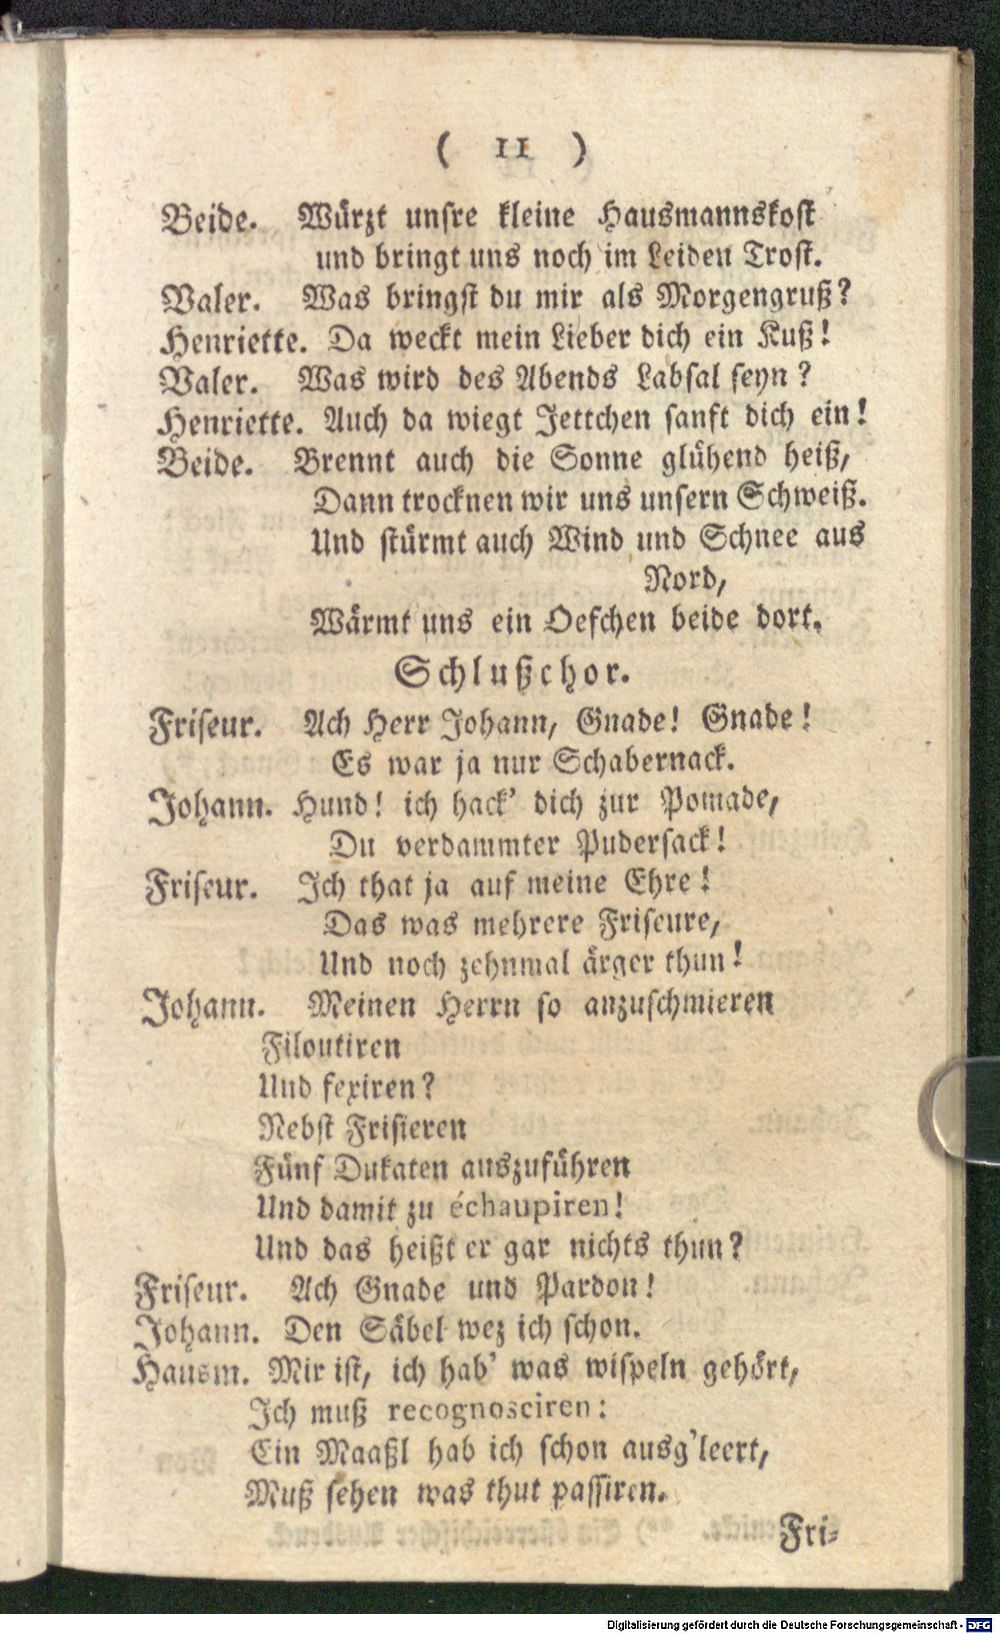 ( 11 )
Beide. Würzt unsre kleine Hausmannskost
und bringt uns noch im Leiden Trost.
Valer. Was bringst du mir als Morgengruß?
Henriette. Da weckt mein Lieber dich ein Kuß!
Valer. Was wird des Abends Labsal seyn?
Henriette. Auch da wiegt Jettchen sanft dich ein!
Beide. Brennt auch die Sonne glühend heiß,
Dann trocknen wir uns unsern Schweiß.
Und stürmt auch Wind und Schnee aus
Nord,
Wärmt uns ein Oefchen beide dort.
Schlußchor.
Friseur. Ach Herr Johann, Gnade! Gnade!
Es war ja nur Schabernack.
Johann. Hund! ich hack' dich zur Pomade,
Du verdammter Pudersack!
Friseur. Ich that ja auf meine Ehre!
Das was mehrere Friseure,
Und noch zehnmal ärger thun!
Johann. Meinen Herrn so anzuschmieren
Filoutiren
Und fexiren?
Nebst Frisieren
Fünf Dukaten auszuführen
Und damit zu échaupiren!
Und das heißt er gar nichts thun?
Friseur. Ach Gnade und Pardon!
Johann. Den Säbel wez ich schon.
Hausm. Mir ist, ich hab' was wispeln gehört,
Ich muß recognosciren:
Ein Maaßl hab ich schon ausg'leert,
Muß sehen was thut passiren.
Fri-
Digitalisierung gefördert durch die Deutsche Forschungsgemeinschaft - DFG